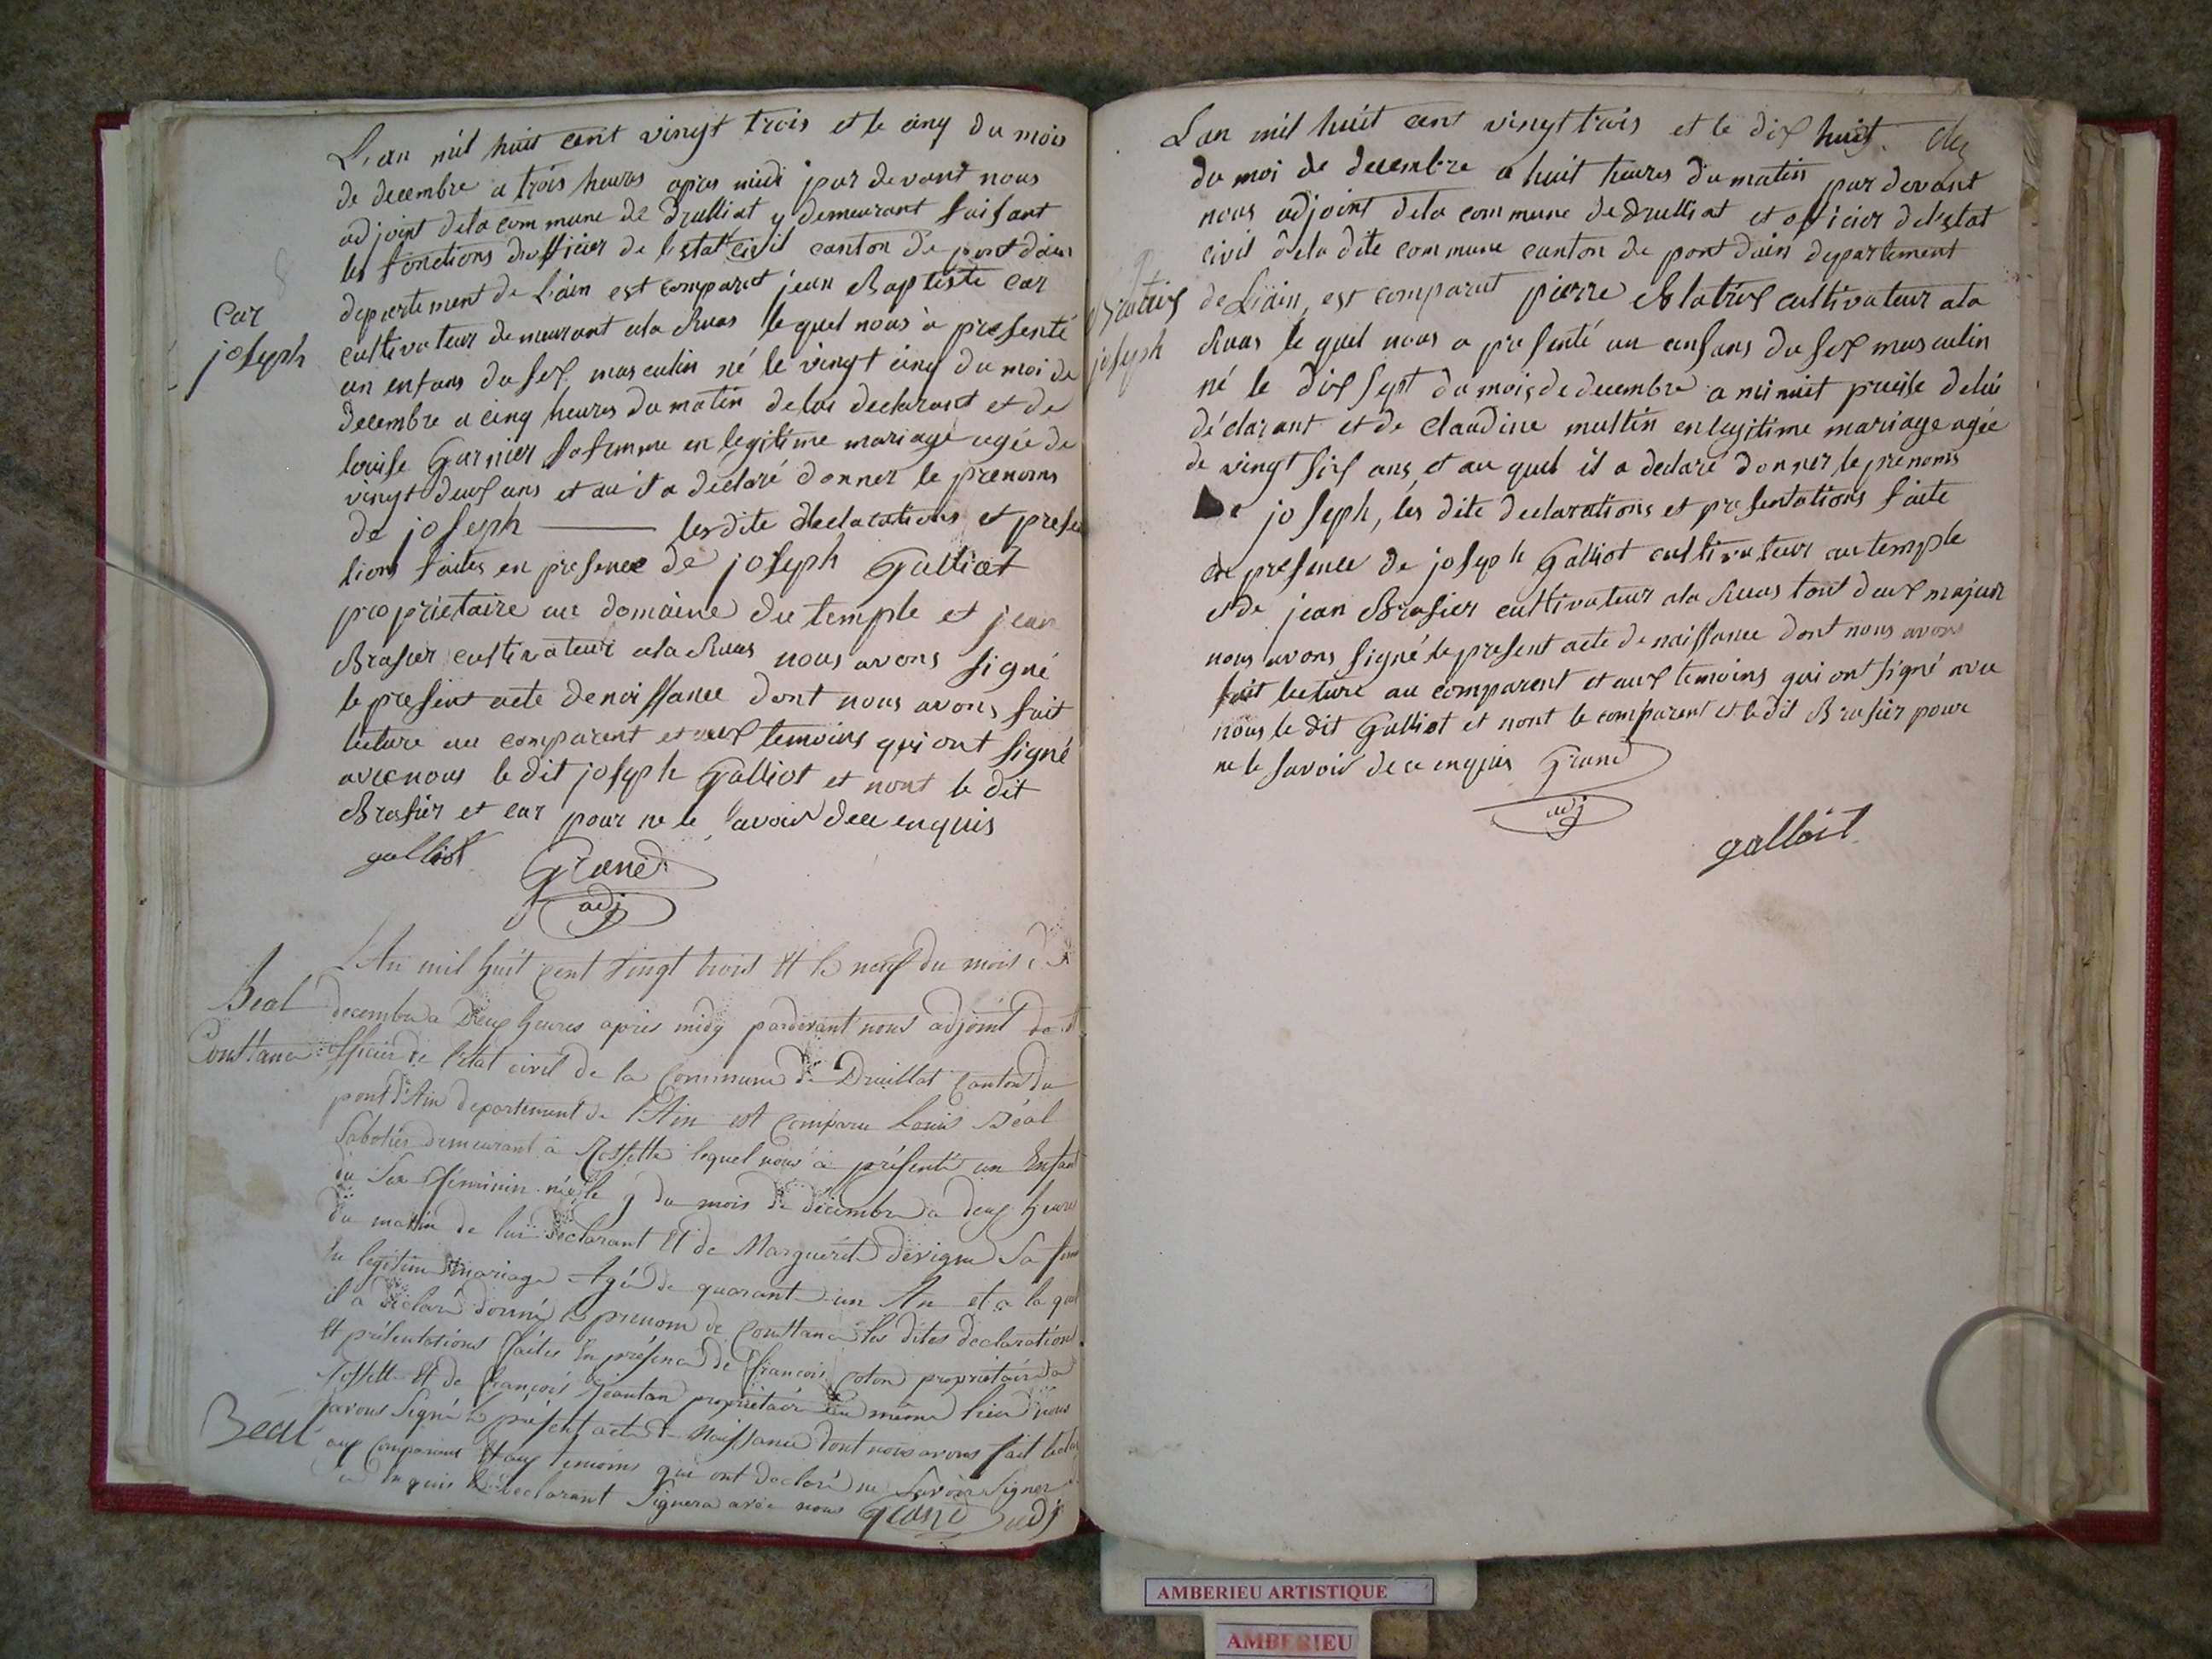 L'an mil huit cent vingt trois et le cinq du mois
de decembre a trois heures apres midi par devant nous
adjoint dela commune de Drulliat y demeurant faisant
les fonctions d'officier de l'estat civil canton de pont dain
departement de L'ain est comparut jean Baptiste Car
Car
joseph
cultivateur demeurant ala Ruas lequel nous à presenté
un enfans du sex masculin né le vingt cinq du moi de
decembre a cinq heures du matin de lui declarant et de
louise Garnier sa femme en legitime mariage agée de
vingt deux ans et au il a déclaré donner le prenoms
de joseph les dite declarations et presen
tions faites en presence de joseph Galliot
proprietaire au domaine du temple et jean
Brasier cultivateur ala Ruas nous avons signé
le present acte de naissance dont nous avons fait
lecture au comparent et aux temoins qui ont signé
avec nous le dit joseph Galliot et nont le dit
Brasier et Car pour ne le savoir de ce enquis
galliot Grand
adj
L'An mil huit cent vingt trois Et le neuf du mois de
Beal
Consttance
decembre a Deux heures aprés midy pardevant nous adjoint de et
officier de l'etat civil de la Commune de Druillat Canton du
pont d'Ain departement de l'Ain est Comparu Louis Béal
Sabotier demeurant à Rossette lequel nous à présenté un Enfant
du Sex féminin née le 9 du mois de décembre a deux heures
du matin de lui déclarant Et de Marguérite dévigne Sa fem
En legitime mariage Agée de quarant un An et a la quel
il a déclaré donné le prenom de Consttance les dites declarations
Et présentations faites En présence de françois Coton propriétaire a
Rossette Et de françois Jeantan propriétaire au même lieu nous
avons Signé le présent acte de Naissance dont nous avons fait lectu
aux Comparant Et aux temoins qui ont declaré ne Savoir Signer
ce Enquis Le declarant Signera avec nous Grand adj
Beal
L'an mil huit cent vingt trois et le dix huit
du moi de decembre a huit heures du matin par devant
nous adjoint dela commune de drulliat et officier de l'estat
civil de la dite commune canton de pont dain departement
Blatrix
joseph
de L'ain, est comparut pierre Blatrix cultivateur ala
Ruas le quel nous a presenté un enfans du sex masculin
né le dix sept du mois de decembre a minuit precise de lui
déclarant et de Claudine multin en legitime mariage agée
de vingt six ans, et au quel il a declaré donner le prenoms
De joseph, les dite declarations et presentations faite
en presence de joseph Galliot cultivateur au temple
et de jean Brasier cultivateur ala Ruas tout deux majeur
nous avons signé le present acte de naissance dont nous avons
fait lecture au comparent et aux temoins qui ont signé avec
nous le dit Galliot et nont le comparent et le dit Brasier pour
ne le savoir de ce enquis Grand
adj
galloit
AMBERIEU ARTISTIQUE
AMBERIEU